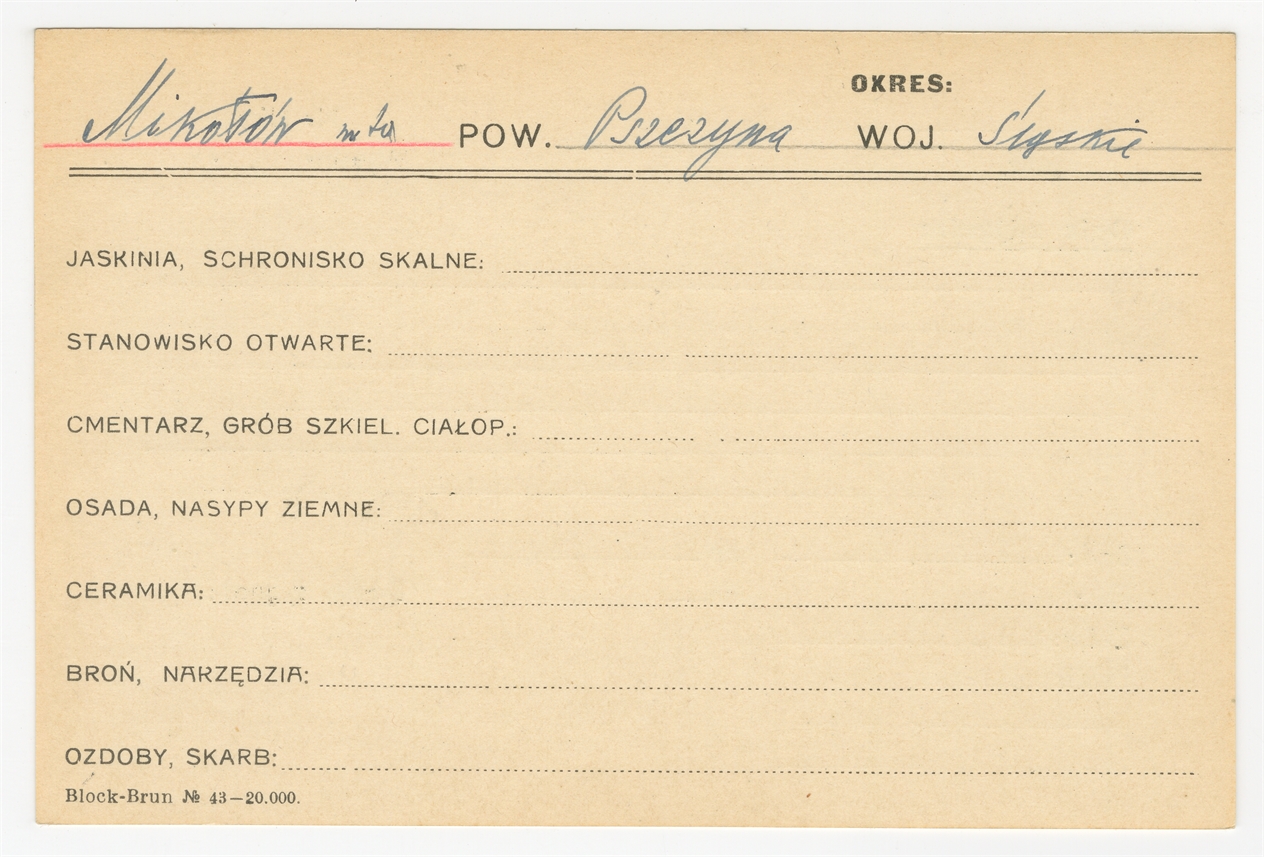 OKRES:
Mikołów m-to POW. Pszczyna WOJ. Śląskie
JASKINIA, SCHRONISKO SKALNE:
STANOWISKO OTWARTE:
CMENTARZ, GRÓB SZKIEL. CIAŁOP.:
OSADA, NASYPY ZIEMNE:
CERAMIKA:
BROŃ, NARZĘDZIA:
OZDOBY, SKARB:
Block-Brun № 43—20.000.